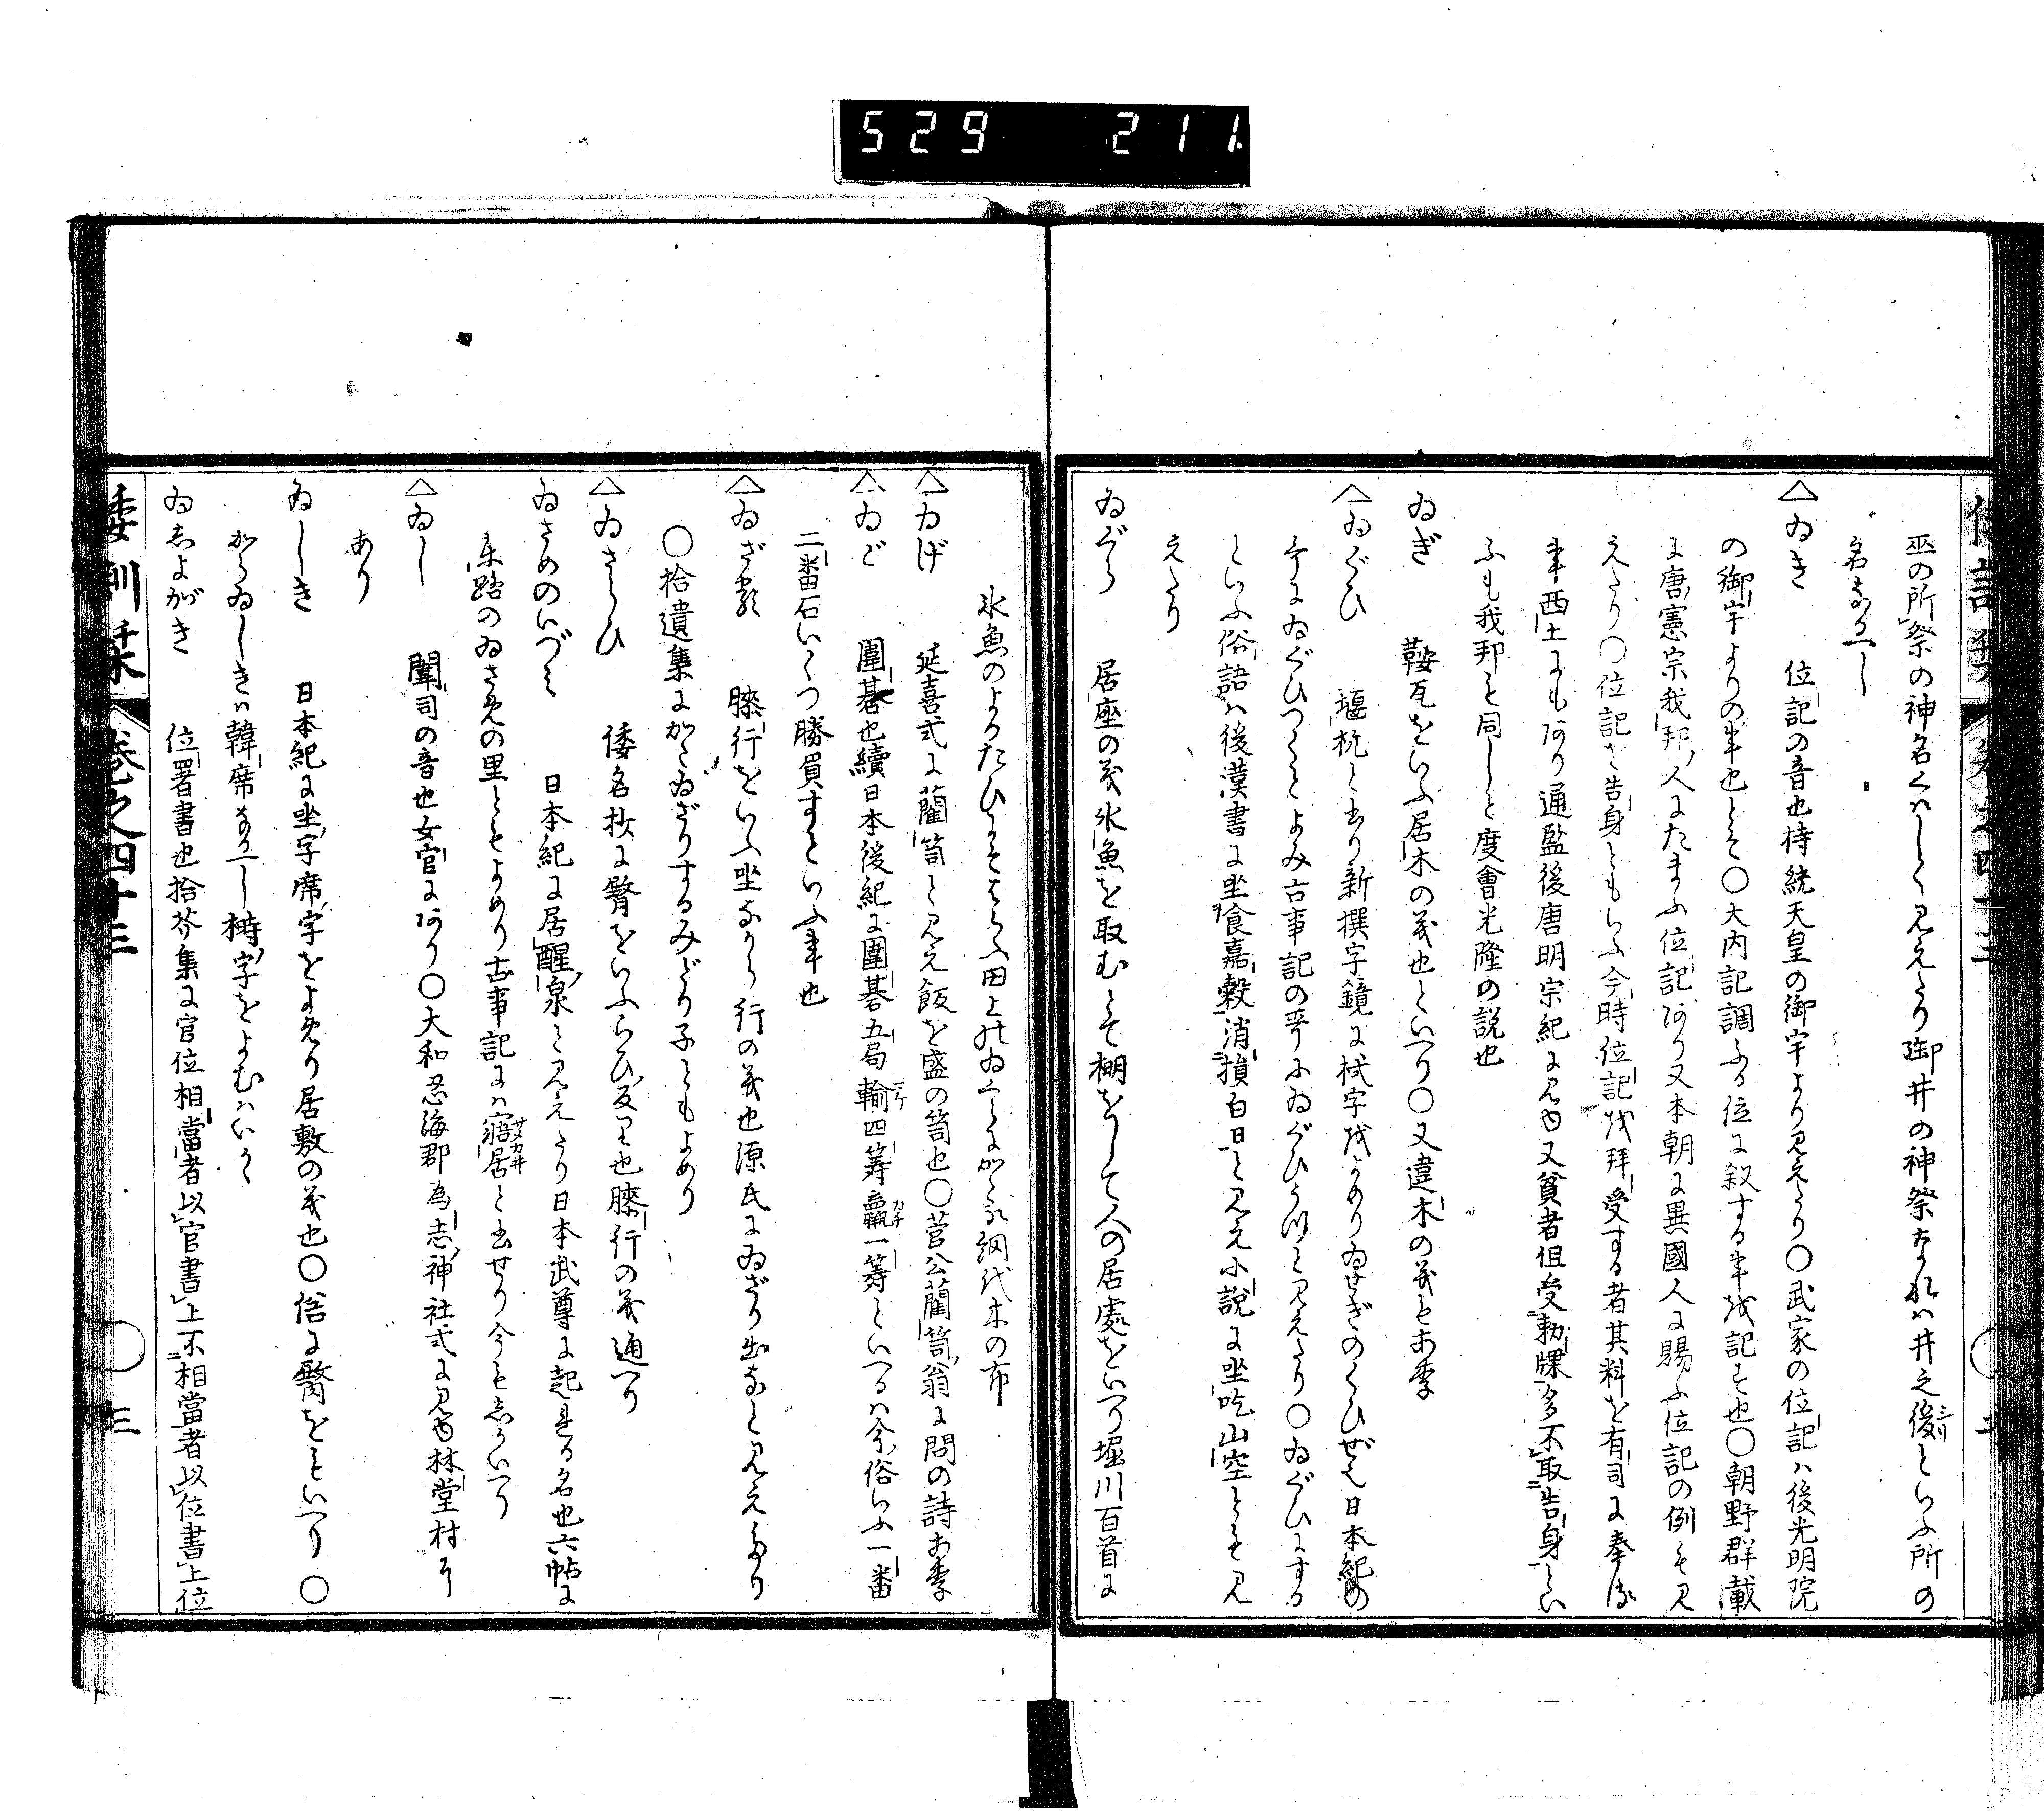 529 211
巫の所祭の神名くはしく見えたり御井の神祭なれハ井之後といふ所の
名なるへし
△ゐき 位記の音也持統天皇の御宇より見えたり○武家の位記ハ後光明院
の御宇よりの事也とそ○大内記調ふる位に叙する事を記す也○朝野群載
に唐憲宗我邦人にたまふ位記あり又本朝に異國人に賜ふ位記の例も見
えたり○位記を告身ともいふ今時位記を拜受する者其料を有司に奉る
事西土にもあり通鑑後唐明宗紀に見ゆ又貧者但受勅牒多不取告身とい
ふも我邦と同しと度會光隆の説也
ゐぎ 鞍瓦をいふ居木の義也といへり○又違木の義もあり
△ゐぐひ 堰杭と書り新撰字鏡に杙字をよめりゐせぎのくひぜ也日本紀の
哥にゐぐひつくとよみ古事記の哥にゐぐひうつと見えたり○ゐぐひにする
といふ俗語ハ後漢書に坐食嘉穀消損白日と見え小説に坐吃山空とも見
えたり
ゐぐら 居座の義氷魚を取むとて棚をして人の居處をいへり堀川百首に
氷魚のよるたひことにはらふ田上のゐくらにかくる網代木の布
△ゐげ 延喜式に藺笥と見え飯を盛の笥也○菅公藺笥翁に問の詩あり
△ゐご 圍碁也續日本後紀に圍碁五局輸四籌贏一籌といへるハ今俗いふ一番
二番石いくつ勝負すといふ事也
△ゐざり 膝行をいふ坐ながら行の義也源氏にゐざり出なと見えたり
○拾遺集にかくゐざりするみどり子ともよめり
△ゐさらひ 倭名抄に臀をいふらひ反り也膝行の義通へり
ゐさめのいづミ 日本紀に居醒泉と見えたり日本武尊に起れる名也六帖に
東路のゐさめの里ともよめり古事記にハ寤居と書せり今もしかいへり
△ゐし 闈司の音也女官にあり○大和忍海郡為志神社式に見ゆ林堂村に
あり
ゐしき 日本紀に坐字席字をよめり居敷の義也○俗に臀をもいへり○
からゐしきハ韓席なるへし榯字をよむハいかゝ
ゐしよがき 位署書也拾芥集に官位相當者以官書上不相當者以位書上位
倭訓栞 巻之四十三 ○三